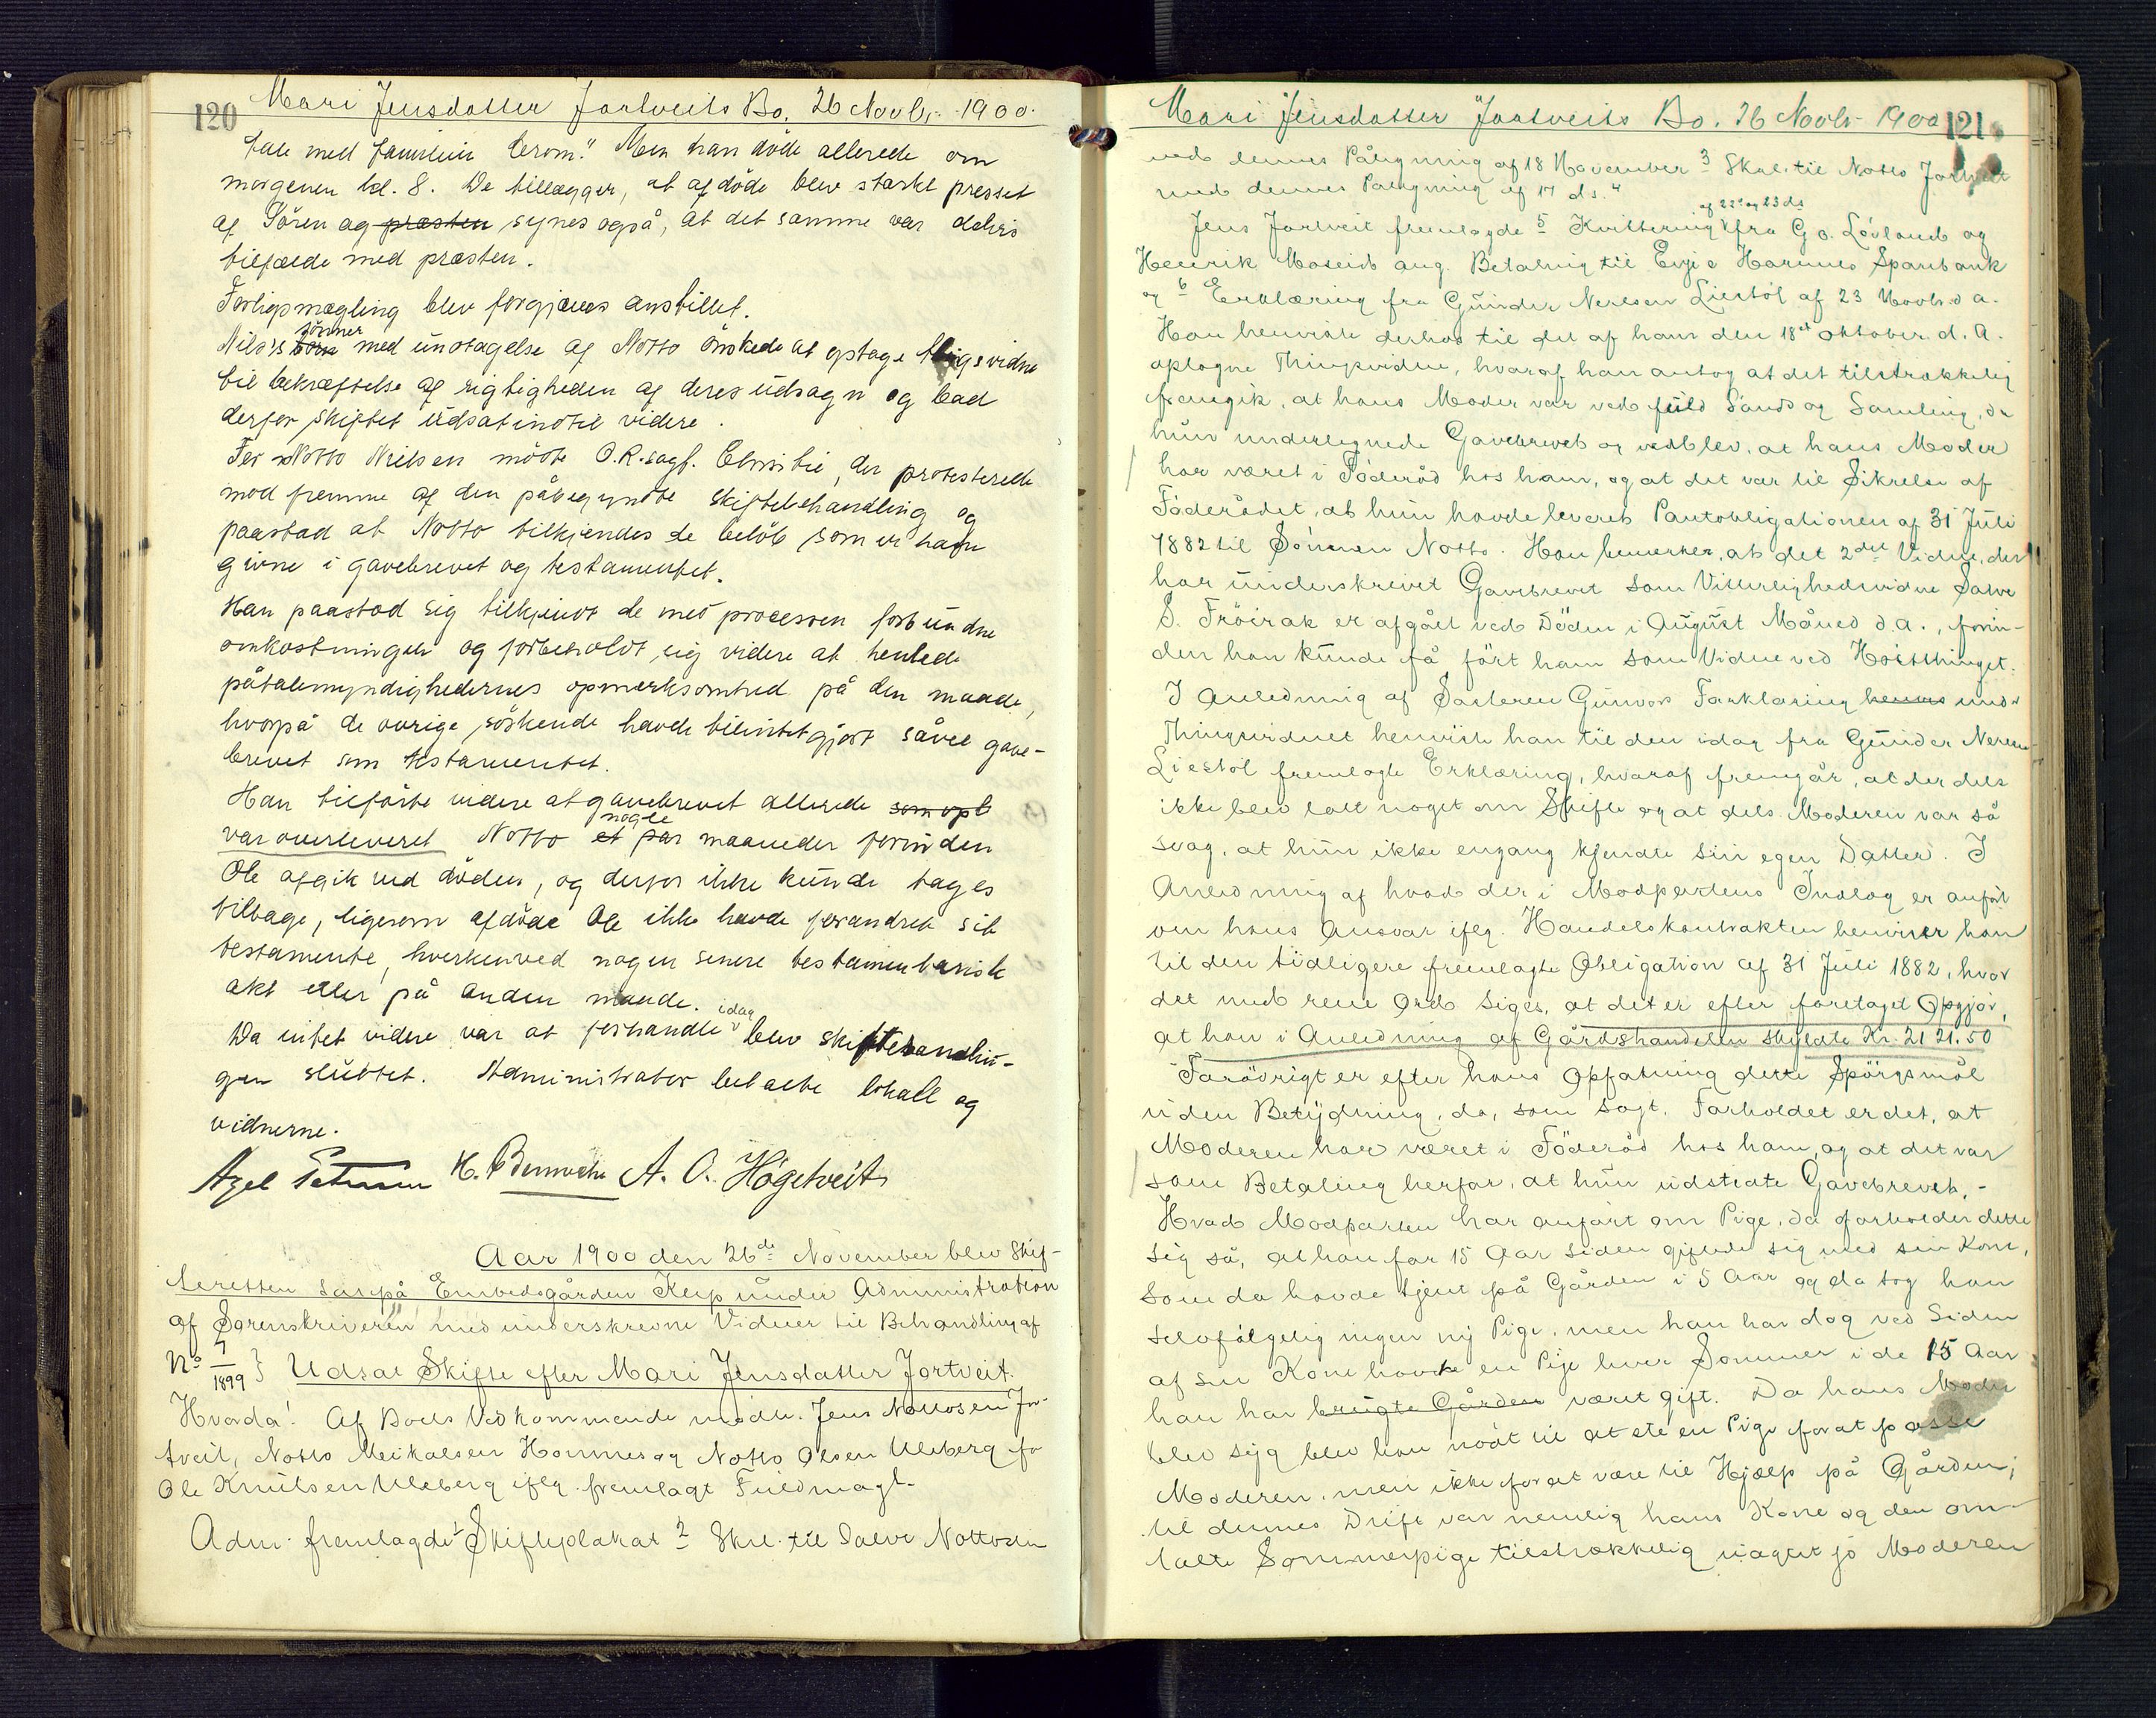 120 Mari Jensdatter Jortveits Bo. 26 Novbr. 1900.
tale med familien derom." Men han døde allerede om
morgenen kl. 8. De tillægger, at afdøde blev stærkt presset
af Søren og præsten synes også, at det samme var delvis
tilfælde med præsten.
Forligsmægling blev forgjæves anstillet.
Nils's børn sønner med undtagelse af Notto ønskede at optage thingsvidne
til bekræftelse af rigtigheden af deres udsagn og bad
derfor skiftet udsat indtil videre.
For Notto Nielsen mødte O.R.sagf. , der protesterede
mod fremme af den påbegyndte skiftebehandling og
paastod at Notto tilkjendes de beløb som er ham
givne i gavebrevet og testamentet.
Han paastod sig tilkjendt de med processen forbundne
omkostninger og forbeholdt sig videre at henlede
påtalemyndighedernes opmærksomhed på den maade,
hvorpå de øvrige søskende havde tilintetgjort såvel gave-
brevet som testamentet.
Han tilførte videre at gavebrevet allerede som opl
var overleveret Notto et par nogle maaneder forinden
Ole afgik ved døden, og derfor ikke kunde tages
tilbage, ligesom afdøde Ole ikke havde forandret sit
testamente, hverken ved nogen senere testamentarisk
akt eller på anden maade.
Da intet videre var at forhandle idag blev skiftebehandlin-
gen sluttet. Administrator betalte lokale og
vidnerne.
Axel Petersen H. A. O. Høgetveit
Aar 1900 den 26de November blev Skif-
teretten sat på Embedsgården Keip under Administration
af Sorenskriveren med underskrevne Vidner til Behandling af
No 7/1899 } Udsat Skifte efter Mari Jensdatter Jortveit.
Hvorda! Af Boets Vedkommende mødte Jens Nottosen Jor-
tveit, Notto Meikalsen Honnes og Notto Olsen Uleberg for
Ole Knutsen Uleberg iflg. fremlagt Fuldmagt.
Adm. fremlagde 1 Skifteplakat 2 Skr. til Salve Nottosen
Mari Jensdatter Jortveits Bo. 26 Novbr. 1900 121
med dennes Påtegning af 18 November 3 Skr. til Notto Jortveit
med dennes Påtegning af 17 ds."
Jens Jortveit fremlagde 5 Kvittering af 22 og 23 ds fra G. O. Løvland og
Henrik Moseid ang. Betaling til Evje & Hornnes Sparebank
og 6 Erklæring fra Gunder Nerisen Liestøl af 23 Novbr. d. a.
Han henviste derhos til det af ham den 18de oktober d. A.
optagne Thingsvidne, hvoraf han antog at det tilstrækkelig
fremgik, at hans Moder var ved fuld Sands og Samling, da
hun undertegnede Gavebrevet og vedblev, at hans Moder
har været i Føderåd hos ham, og at det var til Sikrelse af
Føderådet, at hun havde leveret Pantobligationen af 31 Juli
1882 til Sønnen Notto. Han bemærker, at det 2det Vidne, der
har underskrevet Gavebrevet som Vitterlighedsvidne Salve
S. Frøirak er afgået ved Døden i August Måned d. a., forin-
den han kunde få ført ham som Vidne ved Høstthinget.
I Anledning af Søsteren Gunvors Forklaring hennes under
Thingsvidnet henviste han til den idag fra Gunder Nerisen
Liestøl fremlagte Erklæring, hvoraf fremgår, at der dels
ikke blev talt noget om Skifte og at dels Moderen var så
svag, at hun ikke engang kjendte sin egen Datter. I
Anledning af hvad der i Modpartens Indlæg er anført
om hans Ansvar iflg. Handelskontrakten henviser han
til den tidligere fremlagte Obligation af 31 Juli 1882, hvor
det med rene Ord siges, at det er efter foretaget Opgjør,
at han i Anledning af Gårdshandelen skyldte Kr. 2121.50
Forøvrigt er efter hans Opfatning dette Spørgsmål
uden Betydning, da, som sagt, Forholdet er det, at
Moderen har været i Føderåd hos ham, og at det var
som Betaling herfor, at hun udstedte Gavebrevet.-
Hvad Modparten har anført om Pige, da forholder dette
sig så, at han for 15 Aar siden giftede sig med sin Kone,
som da havde tjent på Gården i 5 Aar og da tog han
selvfølgelig ingen ny Pige, men han har dog ved Siden
af sin Kone havt en Pige hver Sommer i de 15 Aar
han har brugte Gården været gift. Da hans Moder
blev syg blev han nødt til at ste en Pige for at passe
Moderen, men ikke for at være til Hjælp på Gården;
til dennes Drift var nemlig hans Kone og den om-
talte Sommerpige tilstrækkelig uagtet jo Moderen